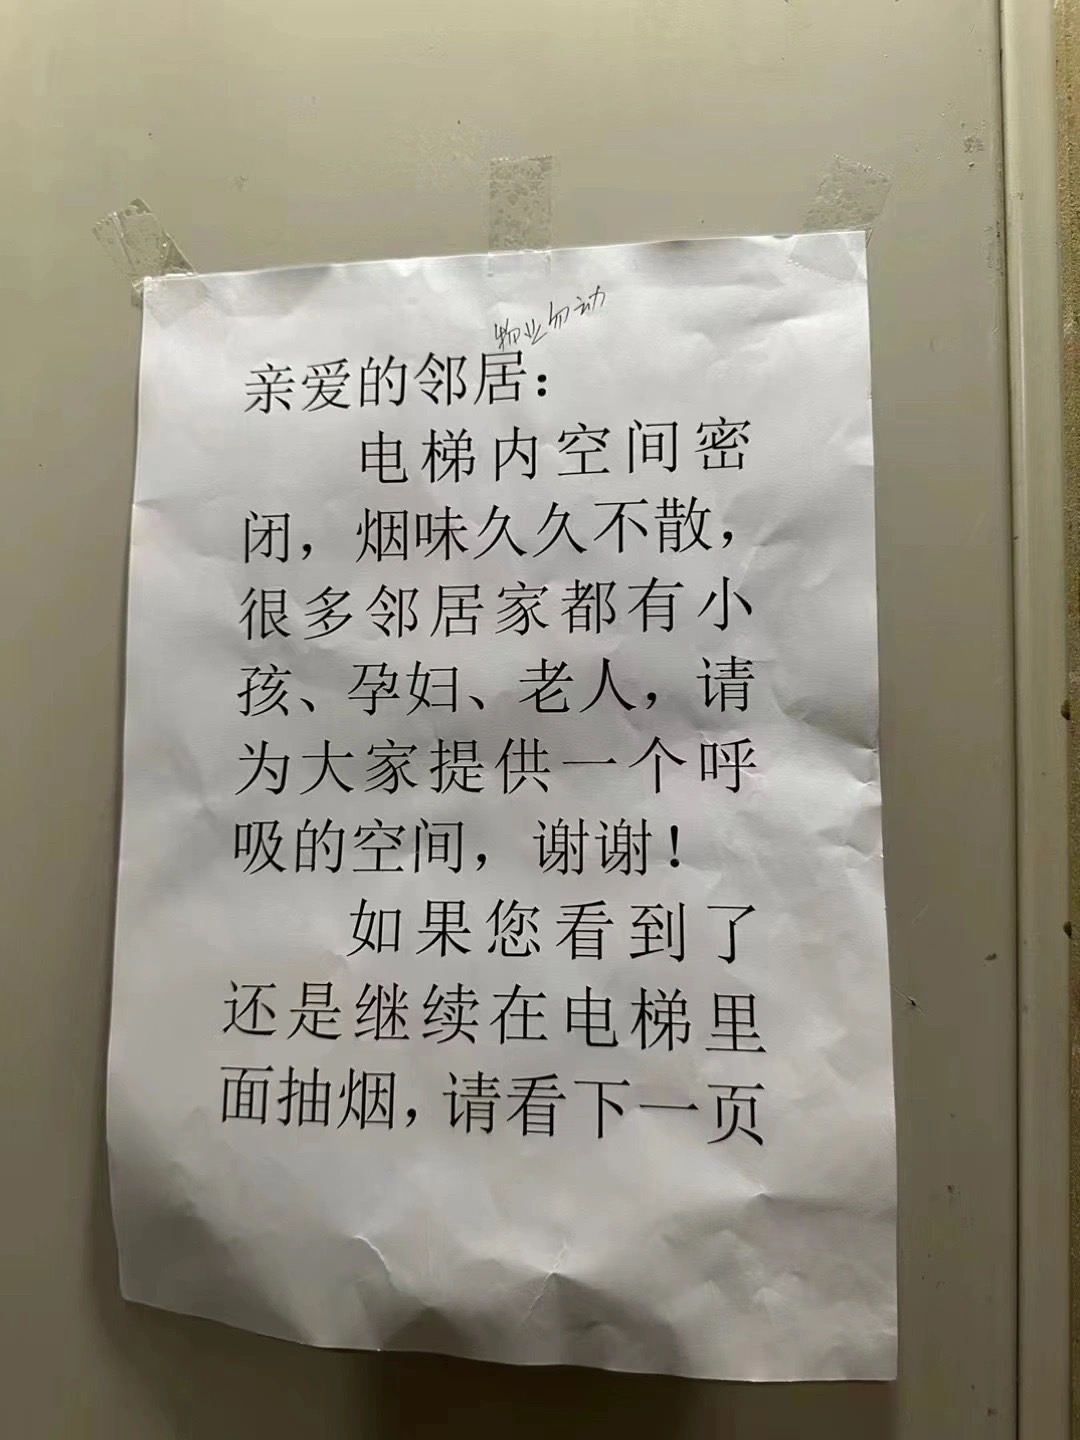 物业勿动
亲爱的邻居：
电梯内空间密
闭，烟味久久不散，
很多邻居家都有小
孩、孕妇、老人，请
为大家提供一个呼
吸的空间，谢谢！
如果您看到了
还是继续在电梯里
面抽烟，请看下一页